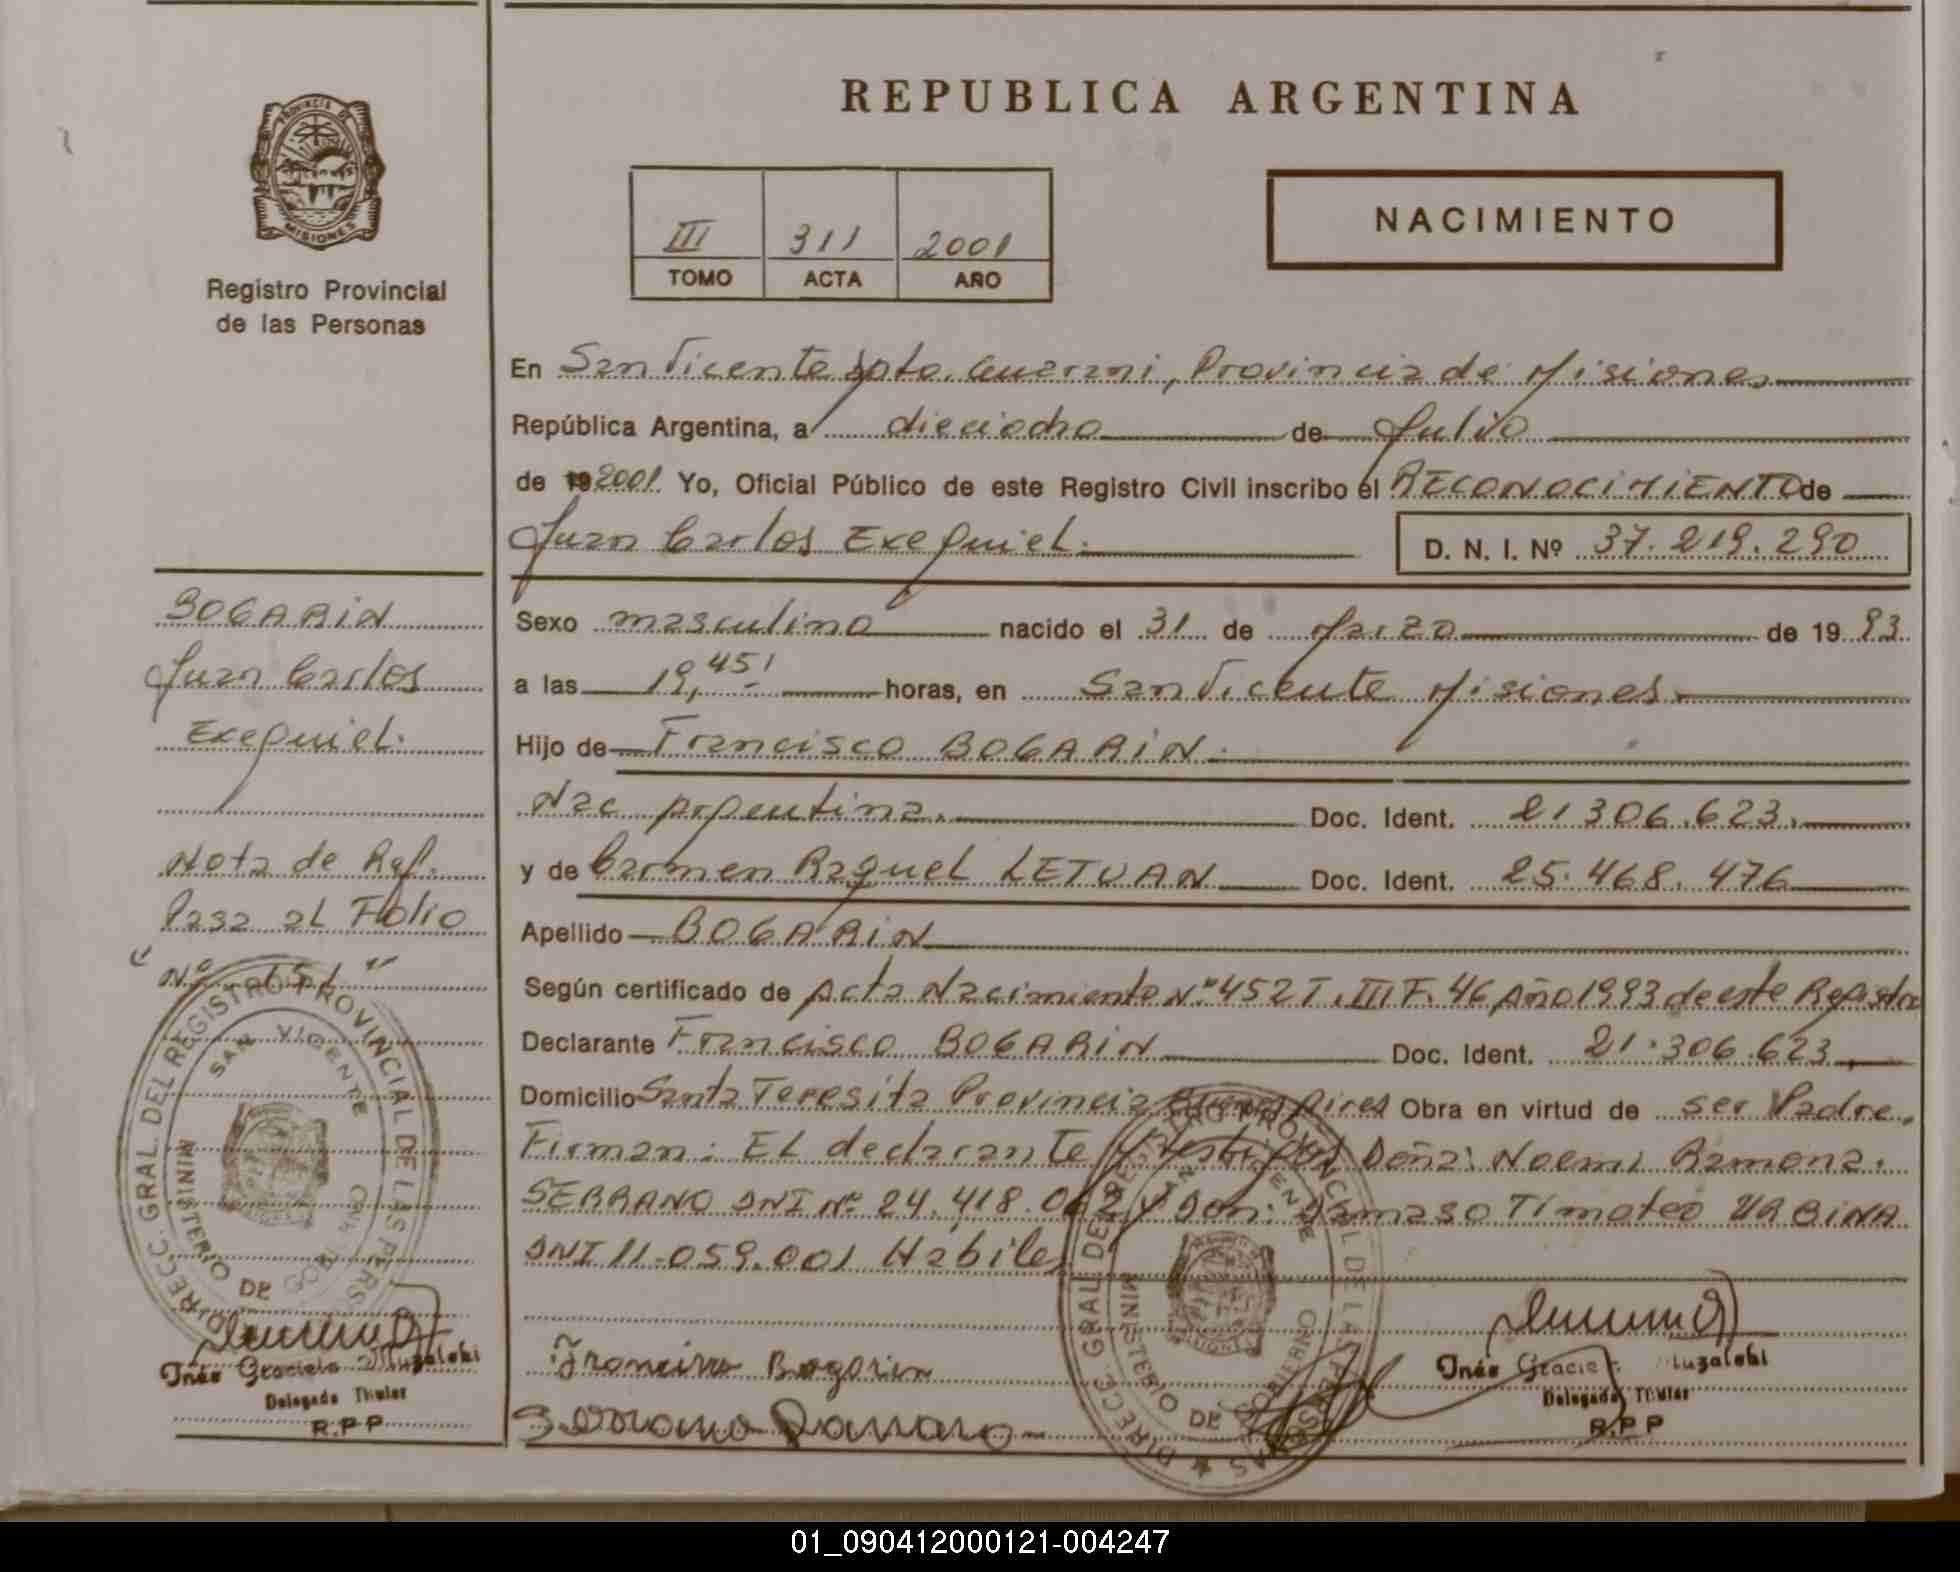 REPUBLICA ARGENTINA
PROVINCIA DE
MISIONES
Registro Provincial
de las Personas
III 311 2001
TOMO ACTA AÑO
NACIMIENTO
En San Vicente Dpto. Guarani, Provincia de Misiones
República Argentina, a dieciocho de Julio
de 19 2001 Yo, Oficial Público de este Registro Civil inscribo el RECONOCIMIENTO de
Juan Carlos Exequiel. D. N. I. Nº 37.219.290
Sexo masculino nacido el 31 de Marzo de 19 93
a las 19,45' horas, en San Vicente Misiones
Hijo de Francisco BOGARIN.
Nac Argentina. Doc. Ident. 21 306.623.
y de Carmen Raquel LETUAN Doc. Ident. 25.468.476
Apellido BOGARIN
Según certificado de Acta Nacimiento Nº 452 T. III F. 46 Año 1993 de este Registro
Declarante Francisco BOGARIN Doc. Ident. 21.306.623
Domicilio Santa Teresita Provincia Buenos Aires Obra en virtud de ser Padre.
Firman: El declarante y testigos Doña: Noemi Ramona.
SERRANO DNI Nº 24.418. y Don: Damaso Timoteo URBINA
DNI 11.059.001 Habiles
Francisco Bogarin
Serrano Ramona
Inés Graciela
Delegada Titular
R.P.P
BOGARIN
Juan Carlos
Exequiel.
Nota de Ref.
Pasa al Folio
" Nº 151 "
DIRECC. GRAL. DEL REGISTRO PROVINCIAL DE LAS PERSONAS
SAN VICENTE
MINISTERIO DE GOBIERNO
Inés Graciela
Delegada Titular
R.P.P
DIRECC. GRAL. DEL REGISTRO PROVINCIAL DE LAS PERSONAS
SAN VICENTE
MINISTERIO DE GOBIERNO
01_090412000121-004247